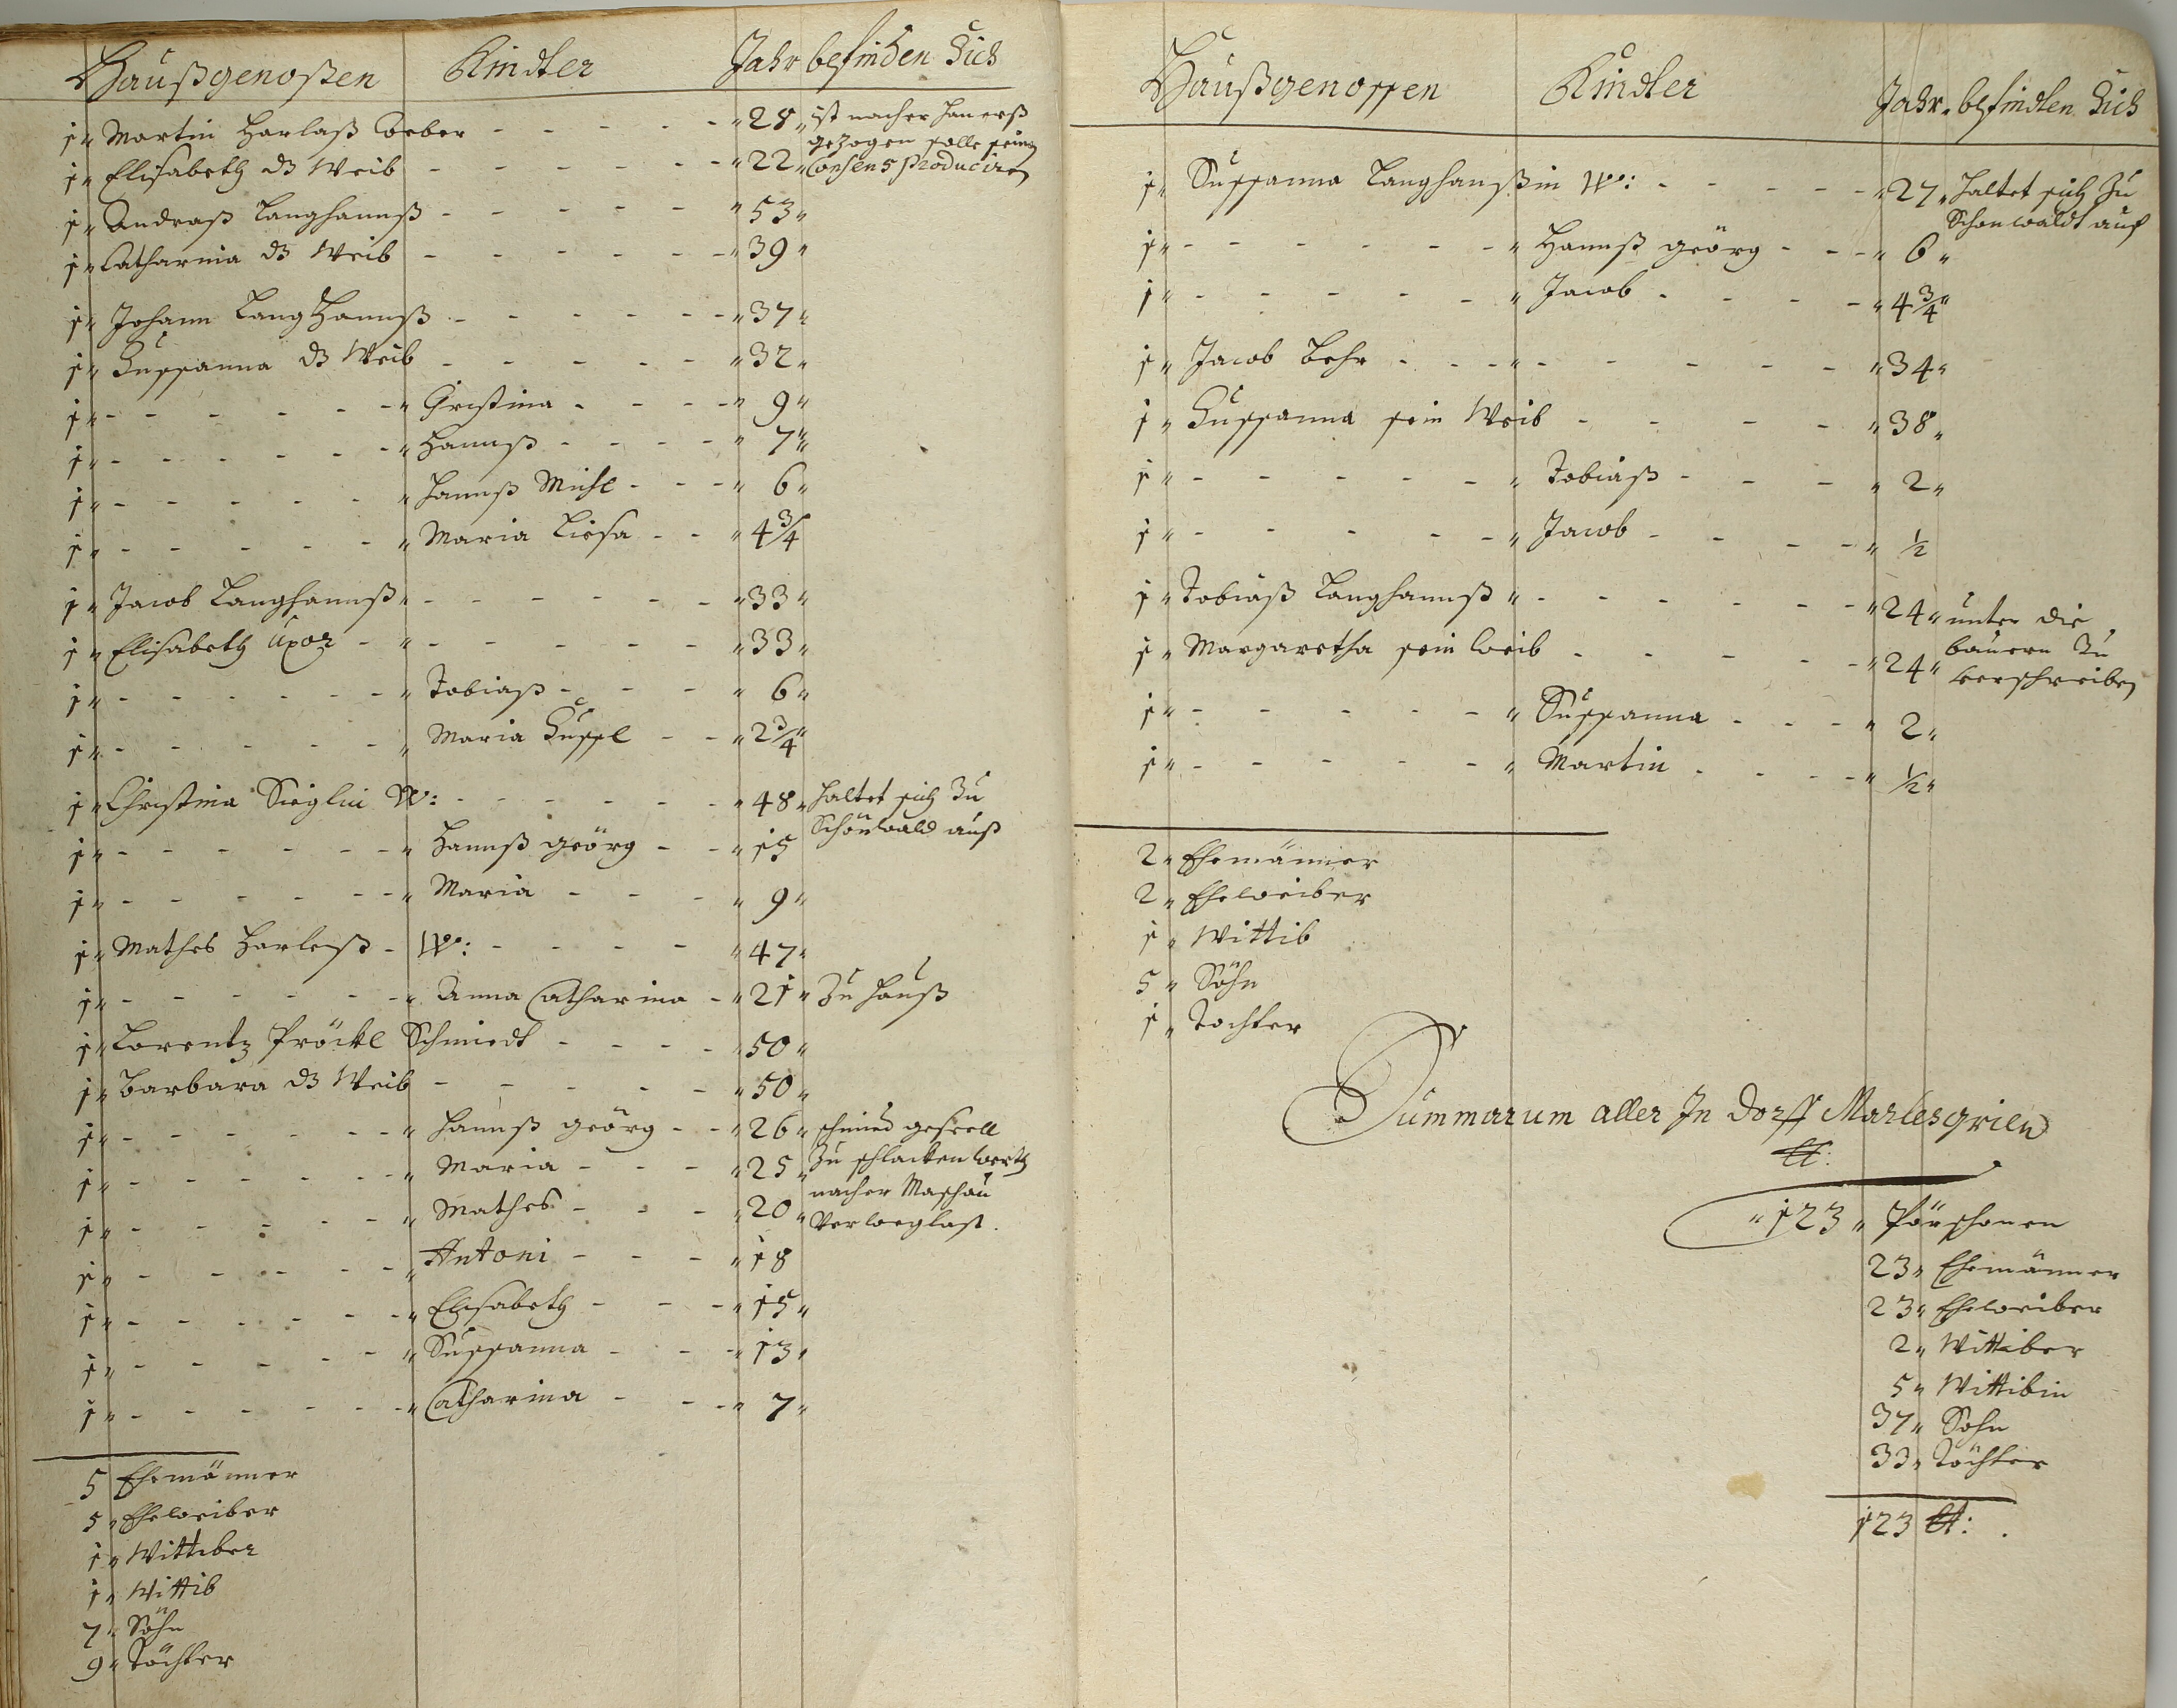 Haußgenoßen Kindter Jahr befinden Sich
1 Martin Harlaß Weber - - - - - 28 ist nacher
gezogen solle sein
1 Elisabeth dz Weib - - - - - - 22 Consens Produciren
1 Andreaß Langhannß - - - - - 53
1 Catharina dz Weib - - - - - - 39
1 Johann LangHannß - - - - - - 37
1 Sussanna dz Weib - - - - - 32
1 - - - - - - Christina - - - - 9
1 - - - - - - Hannß - - - - 7
1 - - - - - Hannß Michl - - - 6
1 - - - - - Maria Liesa - - 4 3/4
1 Jacob Langhannß - - - - - - 33
1 Elisabeth Uxor - - - - - - 33
1 - - - - - - Tobiaß - - - 6
1 - - - - - Maria Sussl - - 2 3/4
1 Christina Sieglin W: - - - - - - 48 haltet sich Zu
Schönwald auff
1 - - - - - - Hannß Geörg - - 15
1 - - - - - - Maria - - - 9
1 Mathes Harleß - W: - - - - 47
1 - - - - - - Anna Catharina - 21 Zu Hauß
1 Lorentz Pröckl Schmiedt - - - - 50
1 Barbara dz Weib - - - - - 50
1 - - - - - - Hannß Geörg - - 26 schmied gesell
1 - - - - - - Maria - - - 25 Zu schlackenwerth
1 - - - - - Mathes - - - 20 nacher Maschau
Verweglast.
1 - - - - - Antoni - - - 18
1 - - - - - - Elisabeth - - - 15
1 - - - - - Sussanna - - - 13
1 - - - - - - Catharina - - - 7
5 Ehemänner
5 Eheweiber
1 Wittiber
1 Wittib
7 Söhn
9 Töchter
Haußgenossen Kindter Jahr befindten Sich
1 Sussanna Langhanßin W: - - - - - 27 Haltet sich Zu
Schonwaldt auf
1 - - - - - - Hannß Geörg - - - 6
1 - - - - - - Jacob - - - - 4 3/4
1 Jacob Behr - - - - - - - - 34
1 Sussanna sein Weib - - - - 38
1 - - - - - - Tobiaß - - - 2
1 - - - - - - Jacob - - - - 1/2
1 Tobiaß Langhannß - - - - - - 24 unter die
bauern Zu
1 Margaretha sein Weib - - - - - 24 verschreiben
1 - - - - - - Sussanna - - - 2
1 - - - - - - Martin - - - - 1/2
2 Ehemänner
2 Eheweiber
1 Wittib
5 Söhn
1 Tochter
Summarum aller In Dorff Marlesgrien
123 Pörschonen
23 Ehemänner
23 Eheweiber
2 Wittiber
5 Wittibin
37 Sohn
33 Töchter
123